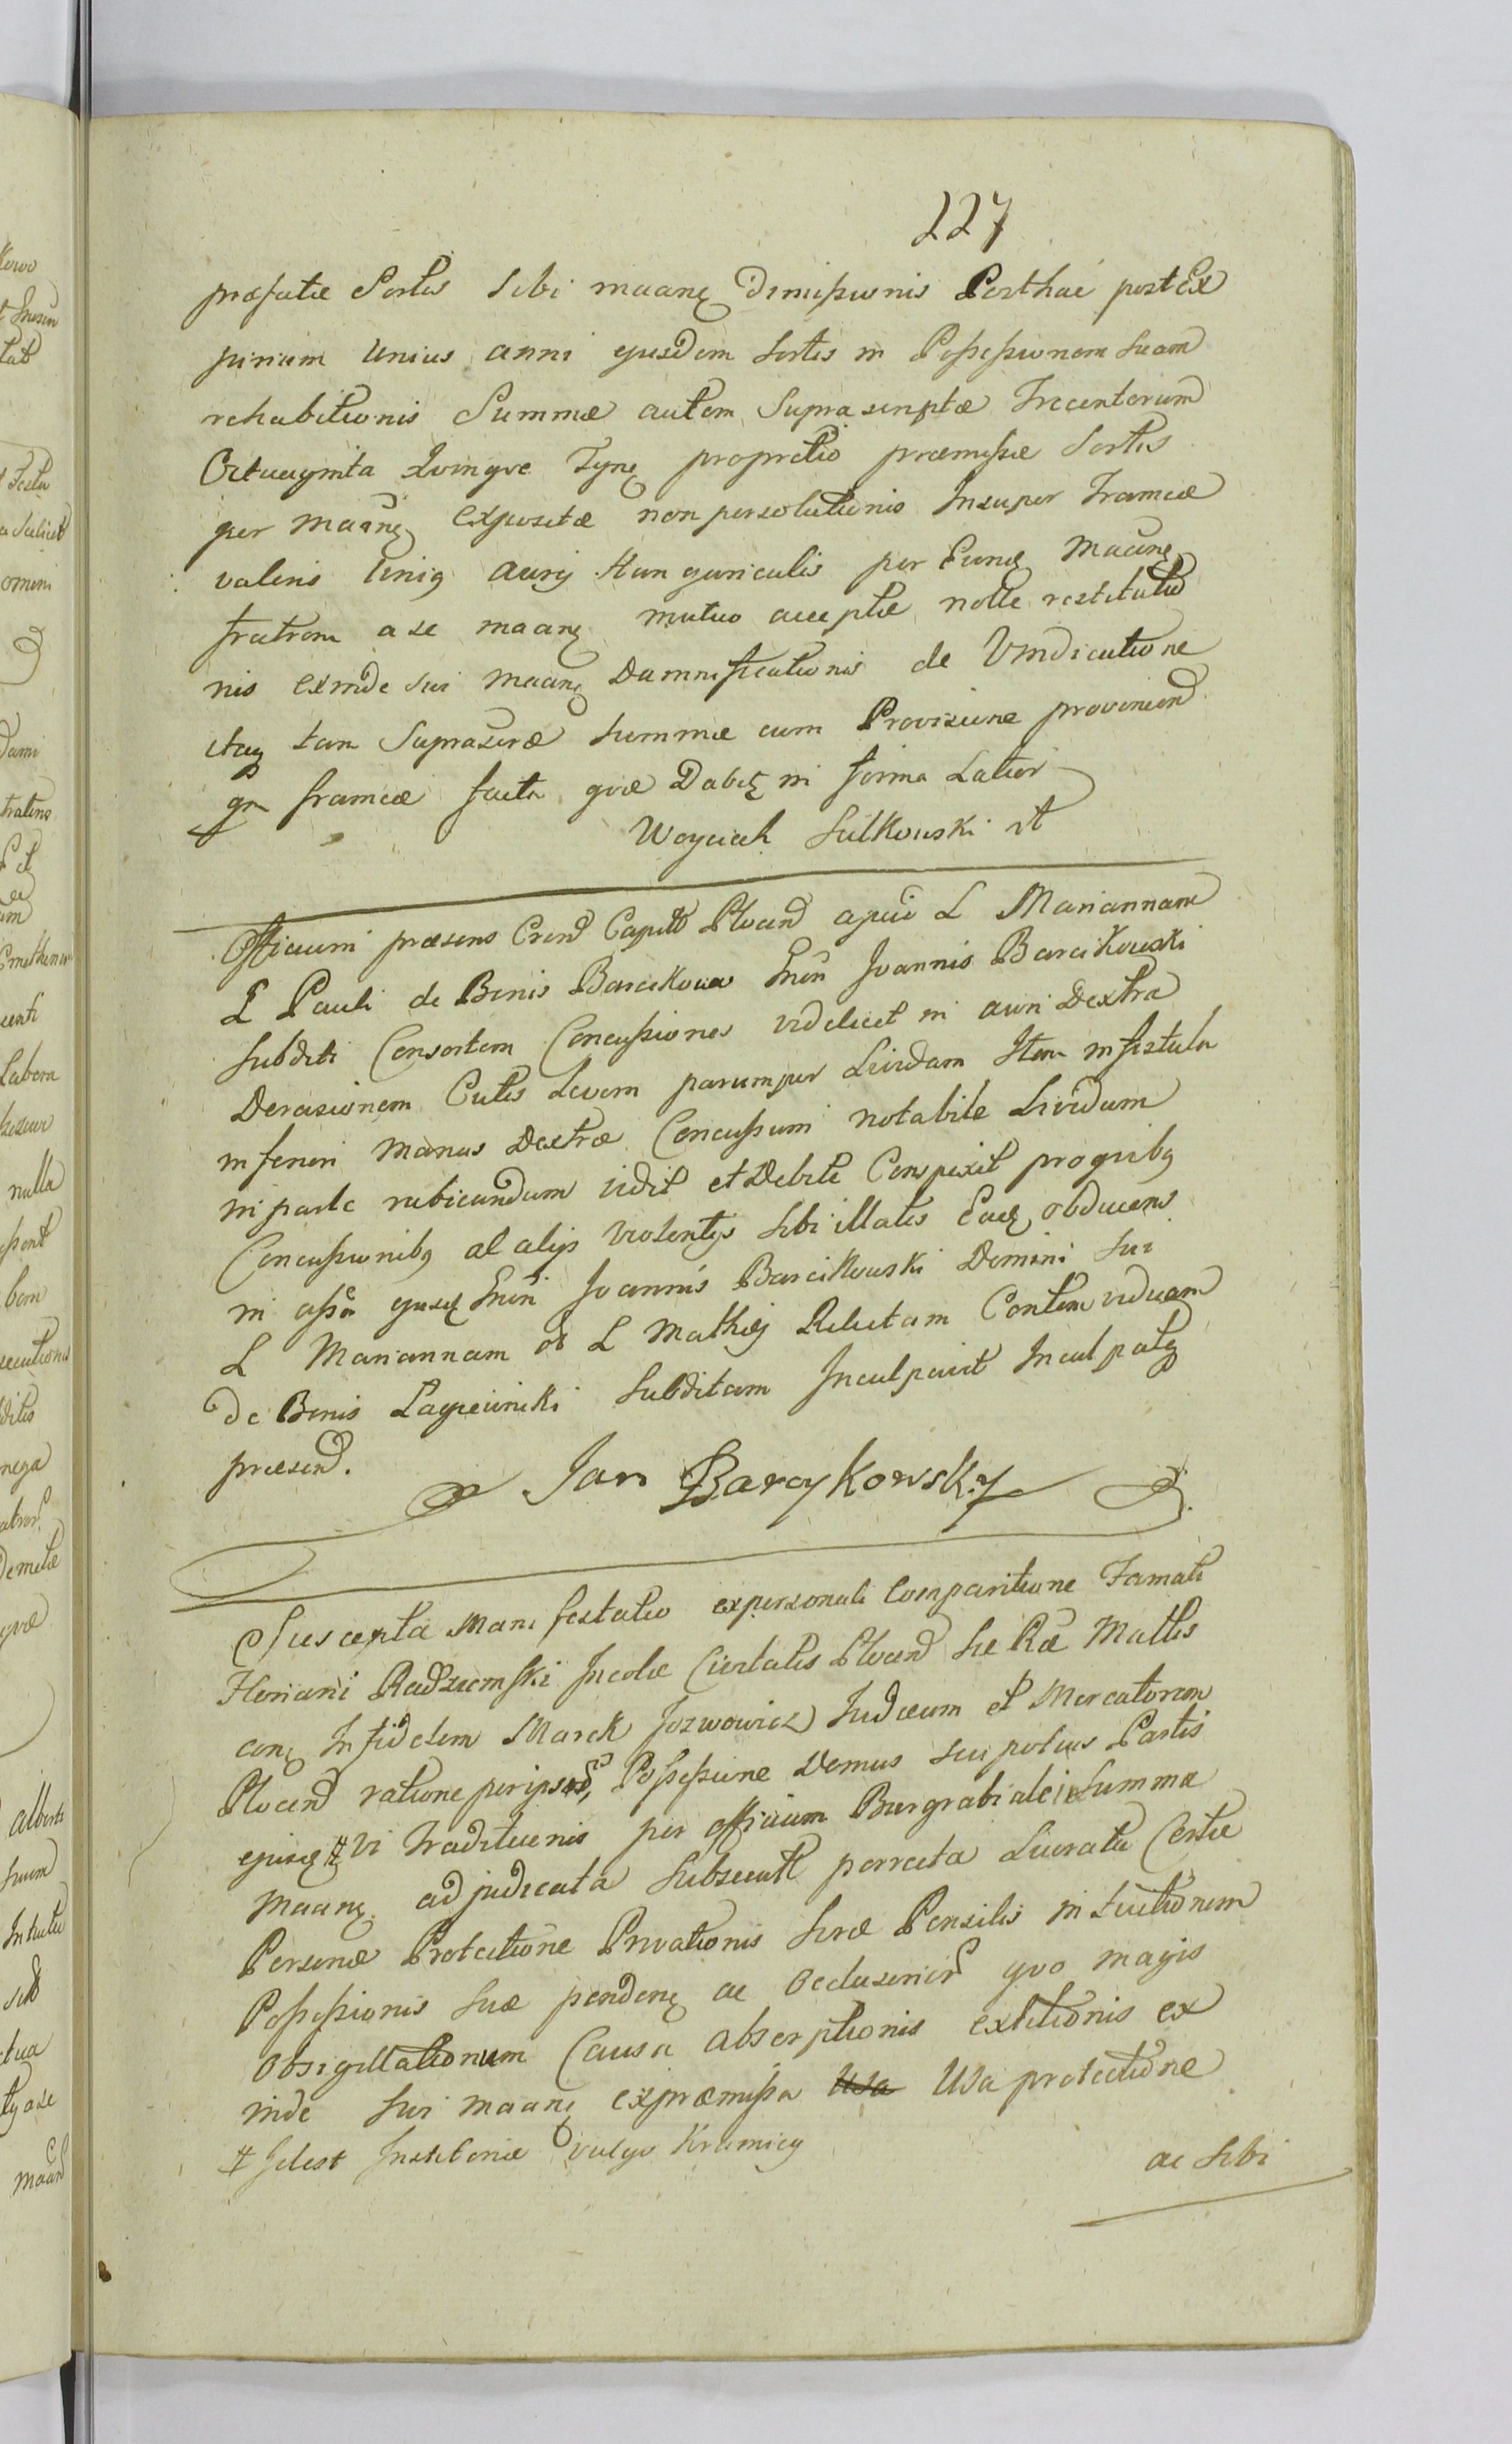 227
præfatæ Sortis sibi maanę dimissionis Posthac post Ex
pirium unius anni ejusdem Sortis in Possessionem suam
rehabitionis Summæ autem Suprascriptæ Trecentorum
Octuaginta Quinque Tynę pro pretio præmissæ Sortis
per maanę Expositæ non persolutionis Insuper Frameæ
valoris Unig Aurej Hungaricalis per Eundę Maanę
fratrem a se maanę mutuo acceptæ nolle restitutio
nis exinde sui maanę Damnificationis de Vindicatione
itaq tam Suprascræ Summæ cum Provisione provenien
q̄m frameæ facta quæ Dabitʒ in forma Latior
Woyciech Sulkowski rt
Officium præsens Crend Capitt Plocen apud L Mariannam
L Pauli de Bonis Barcikowo Gnen Joannis Barcikowski
Subditi Consortem Concussiones videlicet in auri Dextra
Derasionem Cutis Levem parumper Lividam Item in fistula
inferiori Manus Dextræ Concussum notabile Lividum
in parte rubicundum vidit et Debite Conspexit pro quibg
Concussionibg al alijs violentijs sibi illatis Eadʒ obducens
in assā ejusdʒ Gnen Joannis Barcikowski Domini sui
L Mariannam ol L Mathiæ Relictam Contem viduam
de Bonis Łagiewniki Subditam Inculpavit Inculpatq
præsend.
Jan Barcykowsky
Suscepta Manifestatio ex personali Comparitione Famati
Floriani Radziemski Incolæ Civitatis Plocen Sæ Ræ Mattis
conę Infidelem Marek Jozwowicz Judæum et Mercatorem
Plocen ratione per ipsos, Possessione Domus seu potius Partis
ejusdʒ # vi Traditionis per officium Burgrabiale in Summa
Maanę adjudicata Subsecutt porrecta Lucrata Certæ
Personæ Protectione Privationis Seræ Pensilis in tuitionem
Possessionis suæ pendenę ac Occlusionis quo magis
Obsigillationum Causa Absorptionis exlitionis ex
inde sui maanę ex præmissa Usa Usa protectione
# Idest Institoriæ vulgo Kramicy
ac sibi